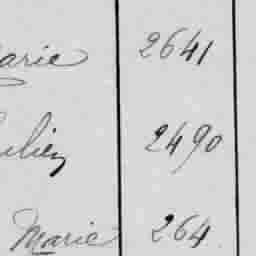 arie 2641
2490
Marie 264